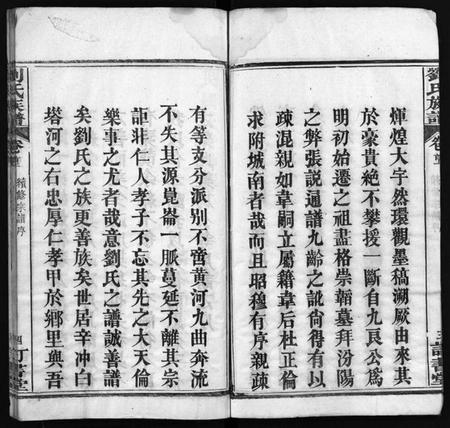 劉氏族譜
卷首
煇煌大宇然環觀墨稿溯厥由來其
於豪貴絕不攀援一斷自九良公爲
明初始遷之祖盡格崇韜墓拜汾陽
之弊張說通譜九齡之訛尙得有以
疏混親如韋嗣立屬籍韋后杜正倫
求附城南者哉而且昭穆有序親疎
有等支分派別不啻黄河九曲奔流
不失其源崑崙一脈蔓延不離其宗
詎非仁人孝子不忘其先之大天倫
樂事之尤者哉意劉氏之譜誠善譜
矣劉氏之族更善族矣世居辛沖白
塔河之右忠厚仁孝甲於鄉里與吾
劉氏族譜
卷首
續修宗譜序